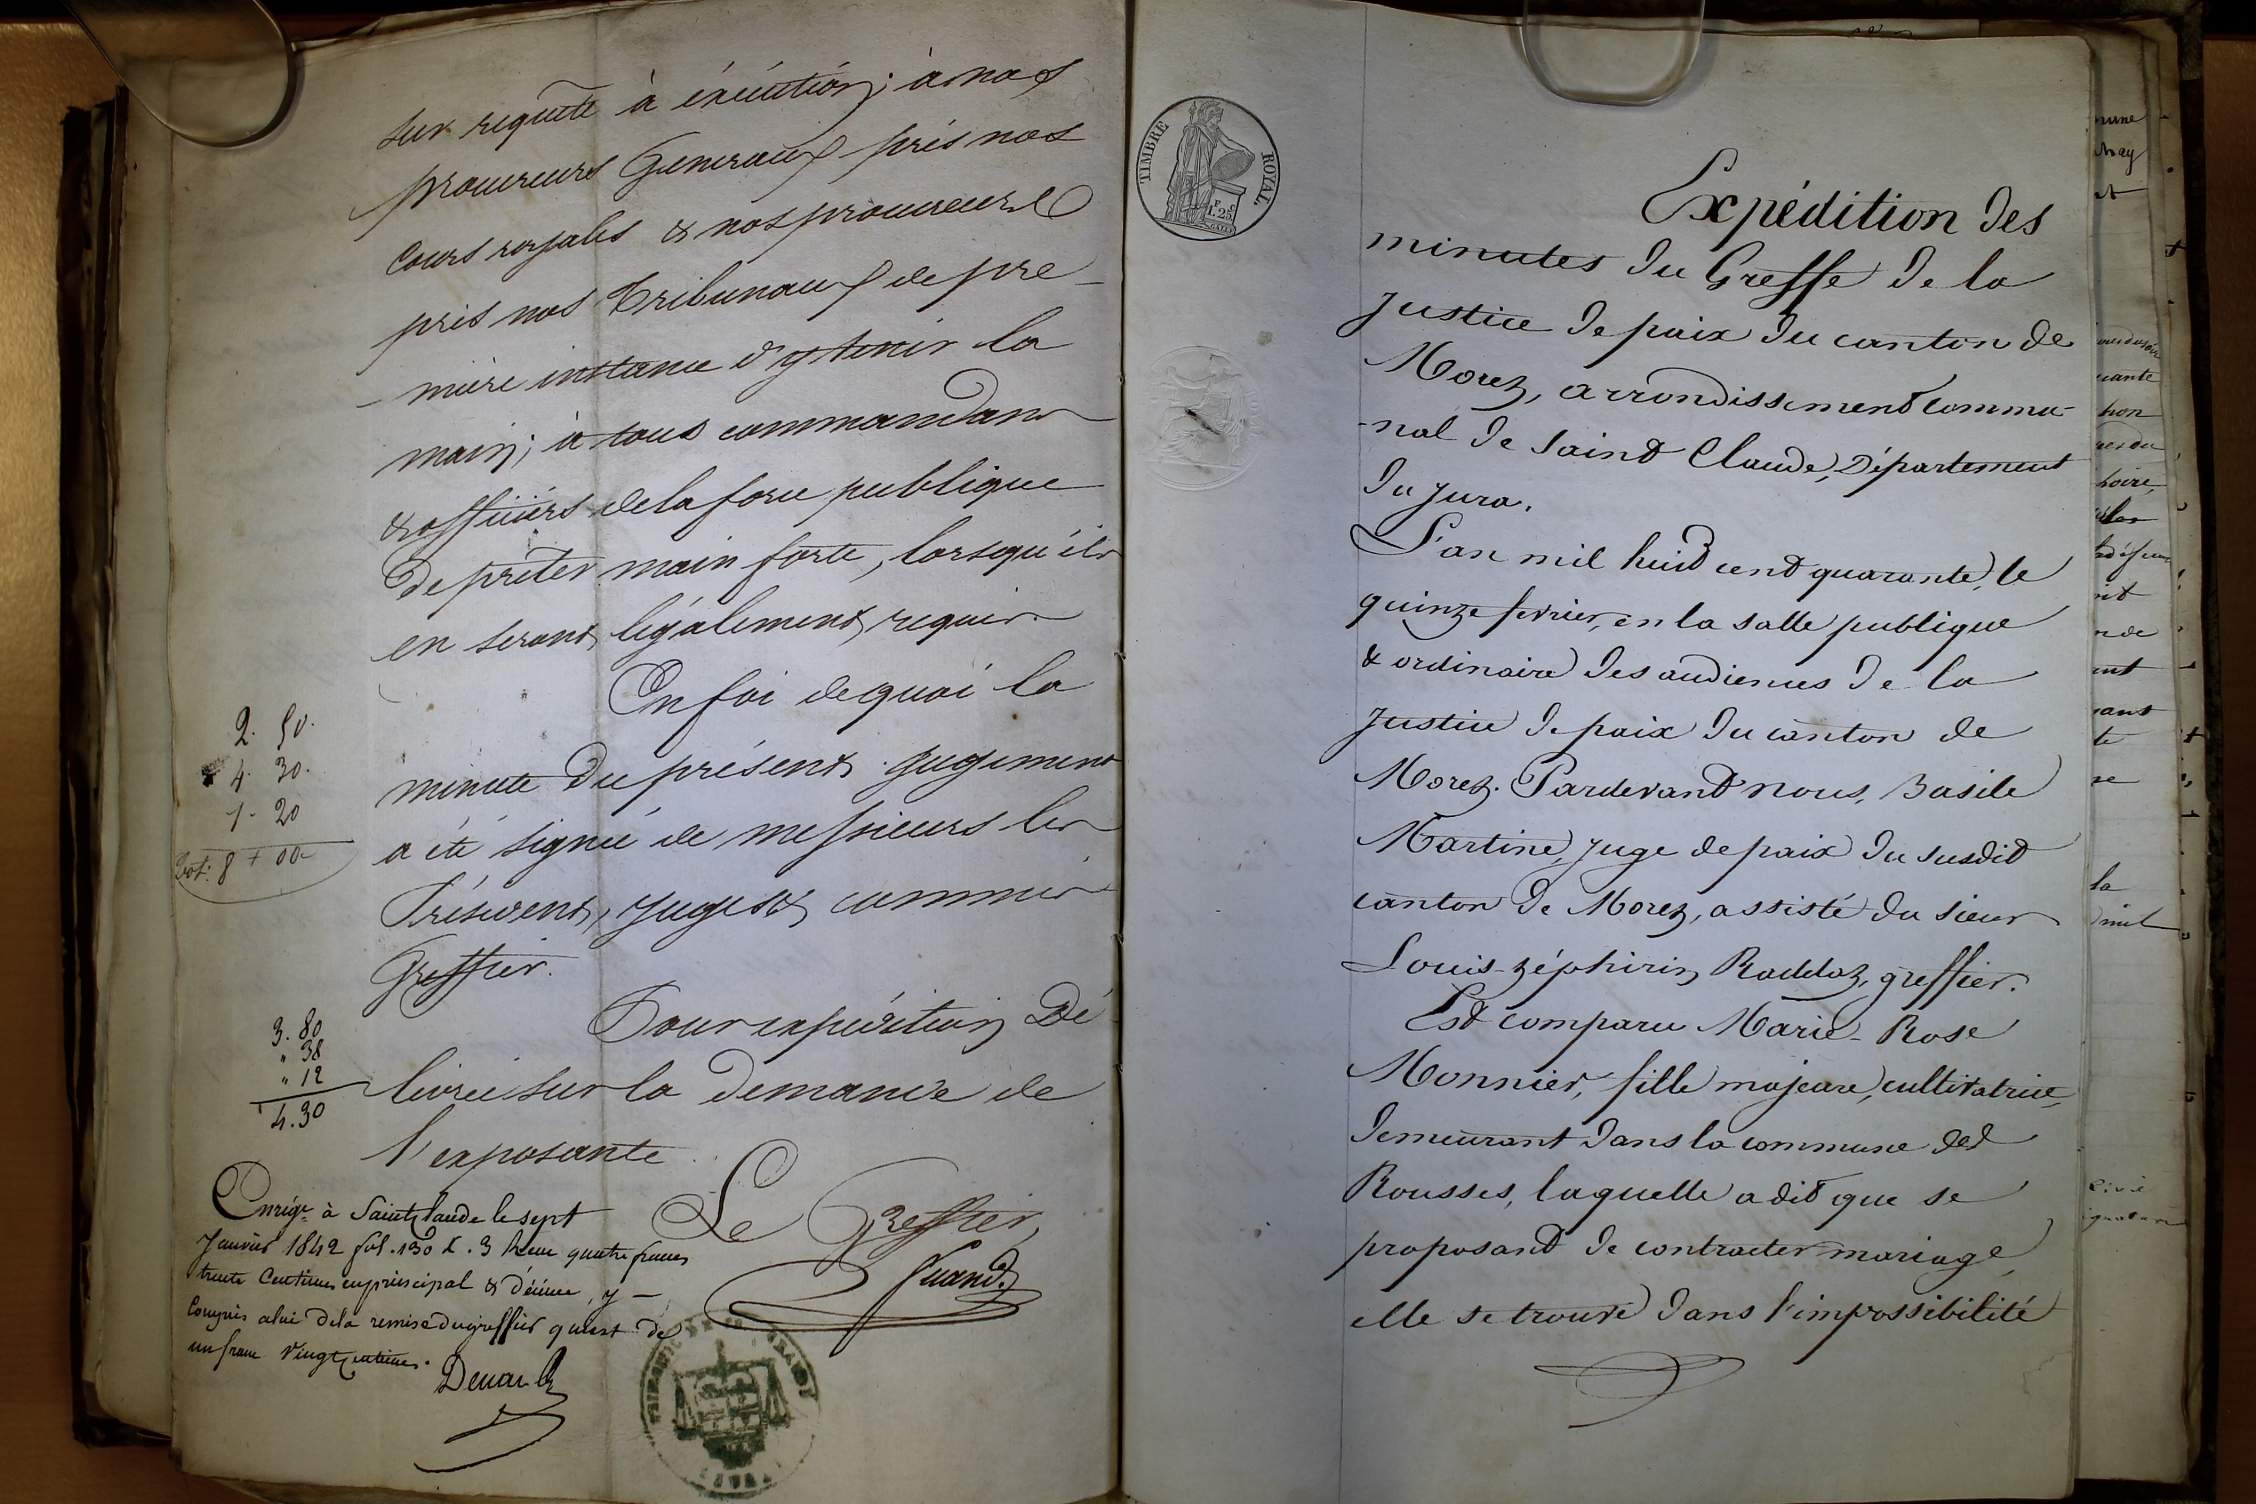 sur requête à éxécution; à nos
procureurs Généraux près nos
Cours royales & nos procureurs
près nos Tribunaux de pre-
-mière instance d'y tenir la
main; à tous commandans
& officiers de la force publique
de prêter main forte, lorsqu'ils
en seront légalement requis.
En foi de quoi la
minute du présent jugement
a été signée de messieurs les
Président, juges & commis
Greffier.
Pour expédition dé
livrée sur la demande de
l'exposante.
Le Greffier,
2. 50.
4. 30.
1. 20
Tot: 8 + 00
3. 80
" 38
" 12
4. 30
Enrégr. à Saint Claude le sept
Janvier 1842 fol. 130 c. 3 Reçu quatre francs
trente Centimes en principal & décime, y
Compris celui de la remise du greffier qui est de
un franc vingt centimes.
TIMBRE ROYAL.
F. C.
1. 25.
Expédition des
minutes du Greffe de la
Justice de paix du canton de
Morez, arrondissement commu-
-nal de Saint Claude, Département
du Jura.
L'an mil huit cent quarante, le
quinze fevrier, en la salle publique
& ordinaire des audiences de la
Justice de paix du canton de
Morez. Pardevant nous, Basile
Martine, juge de paix du susdit
canton de Morez, assisté du sieur
Louis-Zéphirin Raddaz, greffier.
Est comparu Marie-Rose
Monnier, fille majeure, cultivatrice,
demeurant dans la commune des
Rousses, laquelle a dit que se
proposant de contracter mariage,
elle se trouve dans l'impossibilité